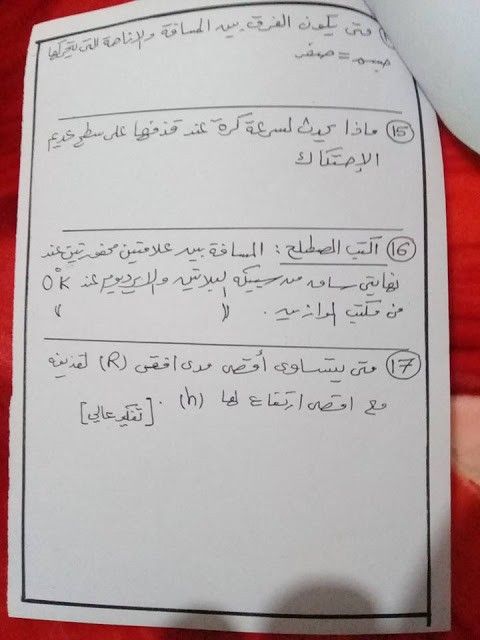 متى يكون الفرق بين المسافة والإزاحة التى يتحركها
جسم = صفر
15 ماذا يحدث لسرعة كرة عند قذفها على سطح عديم
الإحتكاك
16 أكتب المصطلح : المسافة بين علامتين محفورتين عند
نهايتي ساق من سبيكة البلاتين والايريديوم عند 0°K
فى مكتب الموازين . ( )
17 متى يتساوى أقصى مدى افقى (R) لقذيفه
مع اقصى ارتفاع لها (h) . [تفكير عالي]